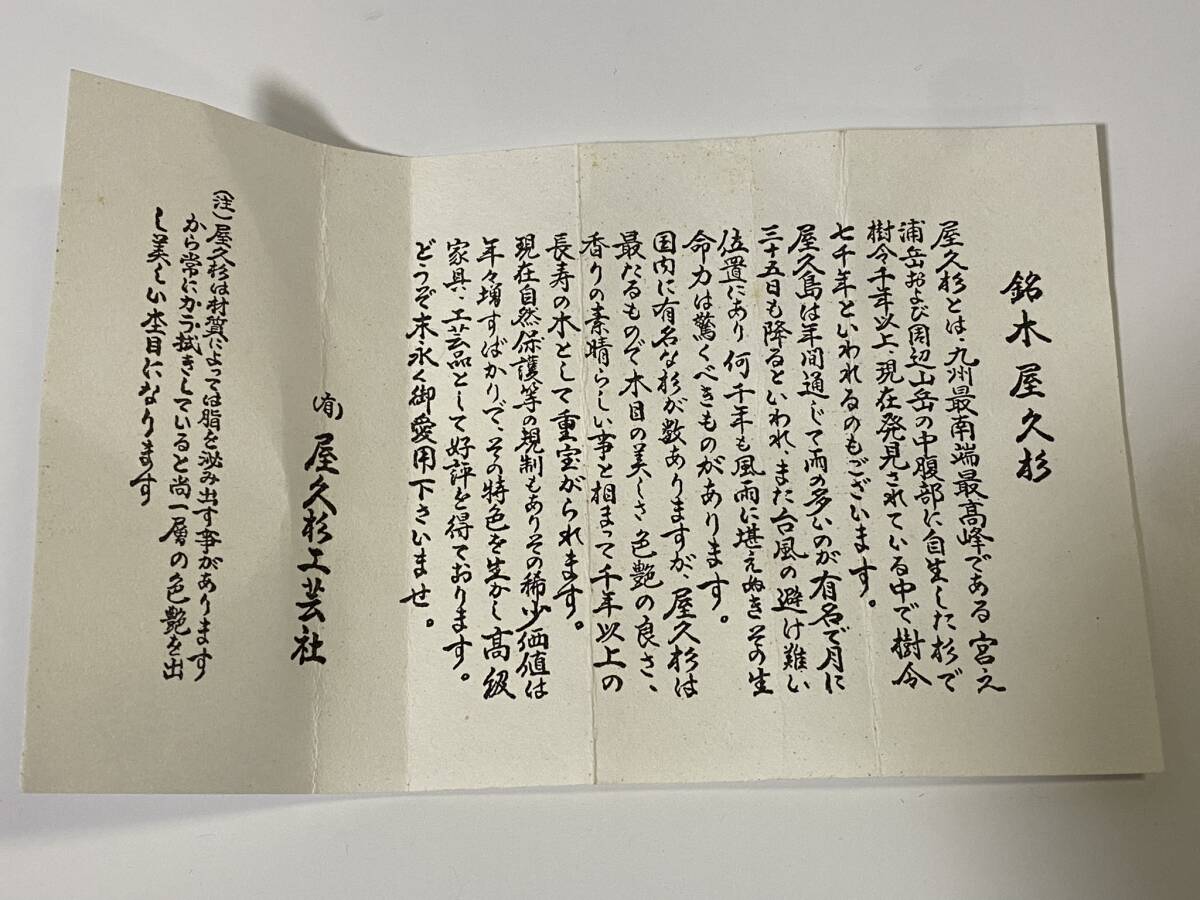 銘木屋久杉
屋久杉とは、九州最南端最高峰である宮之
浦岳および周辺山岳の中腹部に自生した杉で
樹令千年以上、現在発見されている中で樹令
七千年といわれるのもございます。
屋久島は年間通じて雨の多いのが有名で月に
三十五日も降るといわれ、また台風の避け難い
位置にあり何千年も風雨に堪えぬきその生
命力は驚くべきものがあります。
国内に有名な杉が数ありますが、屋久杉は
最たるもので木目の美しさ色艶の良さ、
香りの素晴らしい事と相まって千年以上の
長寿の木として重宝がられます。
現在自然保護等の規制もありその稀少価値は
年々増すばかりで、その特色を生かし高級
家具、工芸品として好評を得ております。
どうぞ末永く御愛用下さいませ。
(有)屋久杉工芸社
(注)屋久杉は材質によっては脂を泌み出す事があります
から常にから拭きしていると尚一層の色艶を出
し美しい木目になります